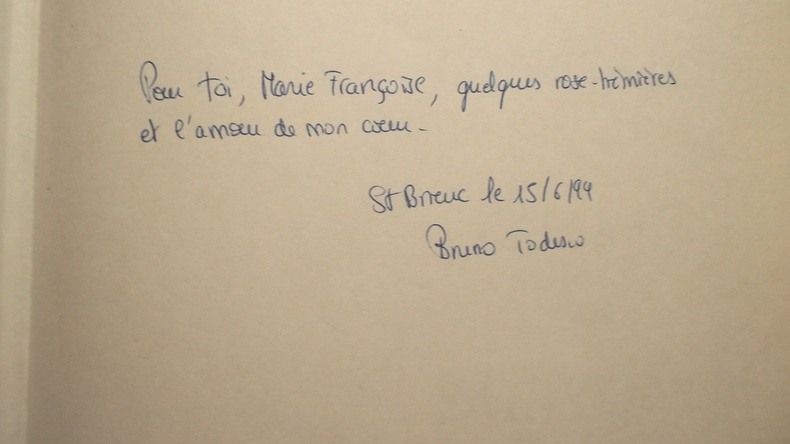 Pour toi, Marie Françoise, quelques rose-trémières
et l'amour de mon cœur.
St Brieuc le 15/6/94
Bruno Todesco